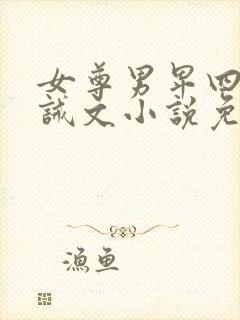 女尊男卑四
誡文小說免
漁魚